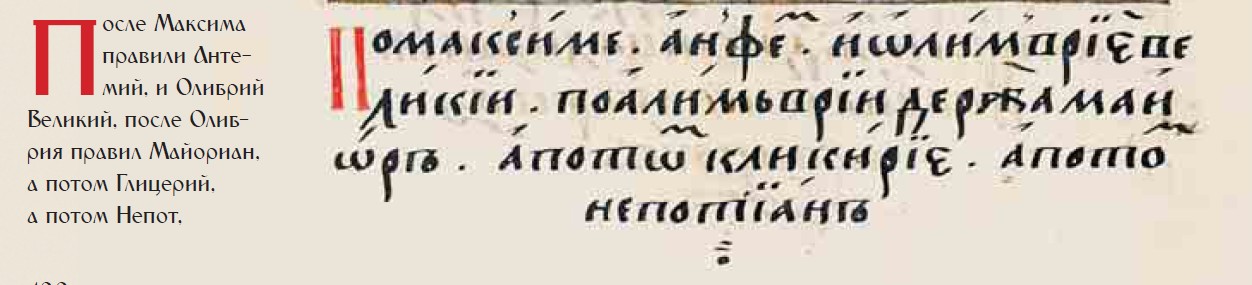 После Максима
правили Анте-
мий, и Олибрий
Великий, после Олиб-
рия правил Майориан,
а потом Глицерий,
а потом Непот,
Помаксиме. анфе. иѡлимпрїе пе
ликїи. поалимьпрїи держа маи
ѡръ. апотѡ кликирїе. апото
непотїанъ